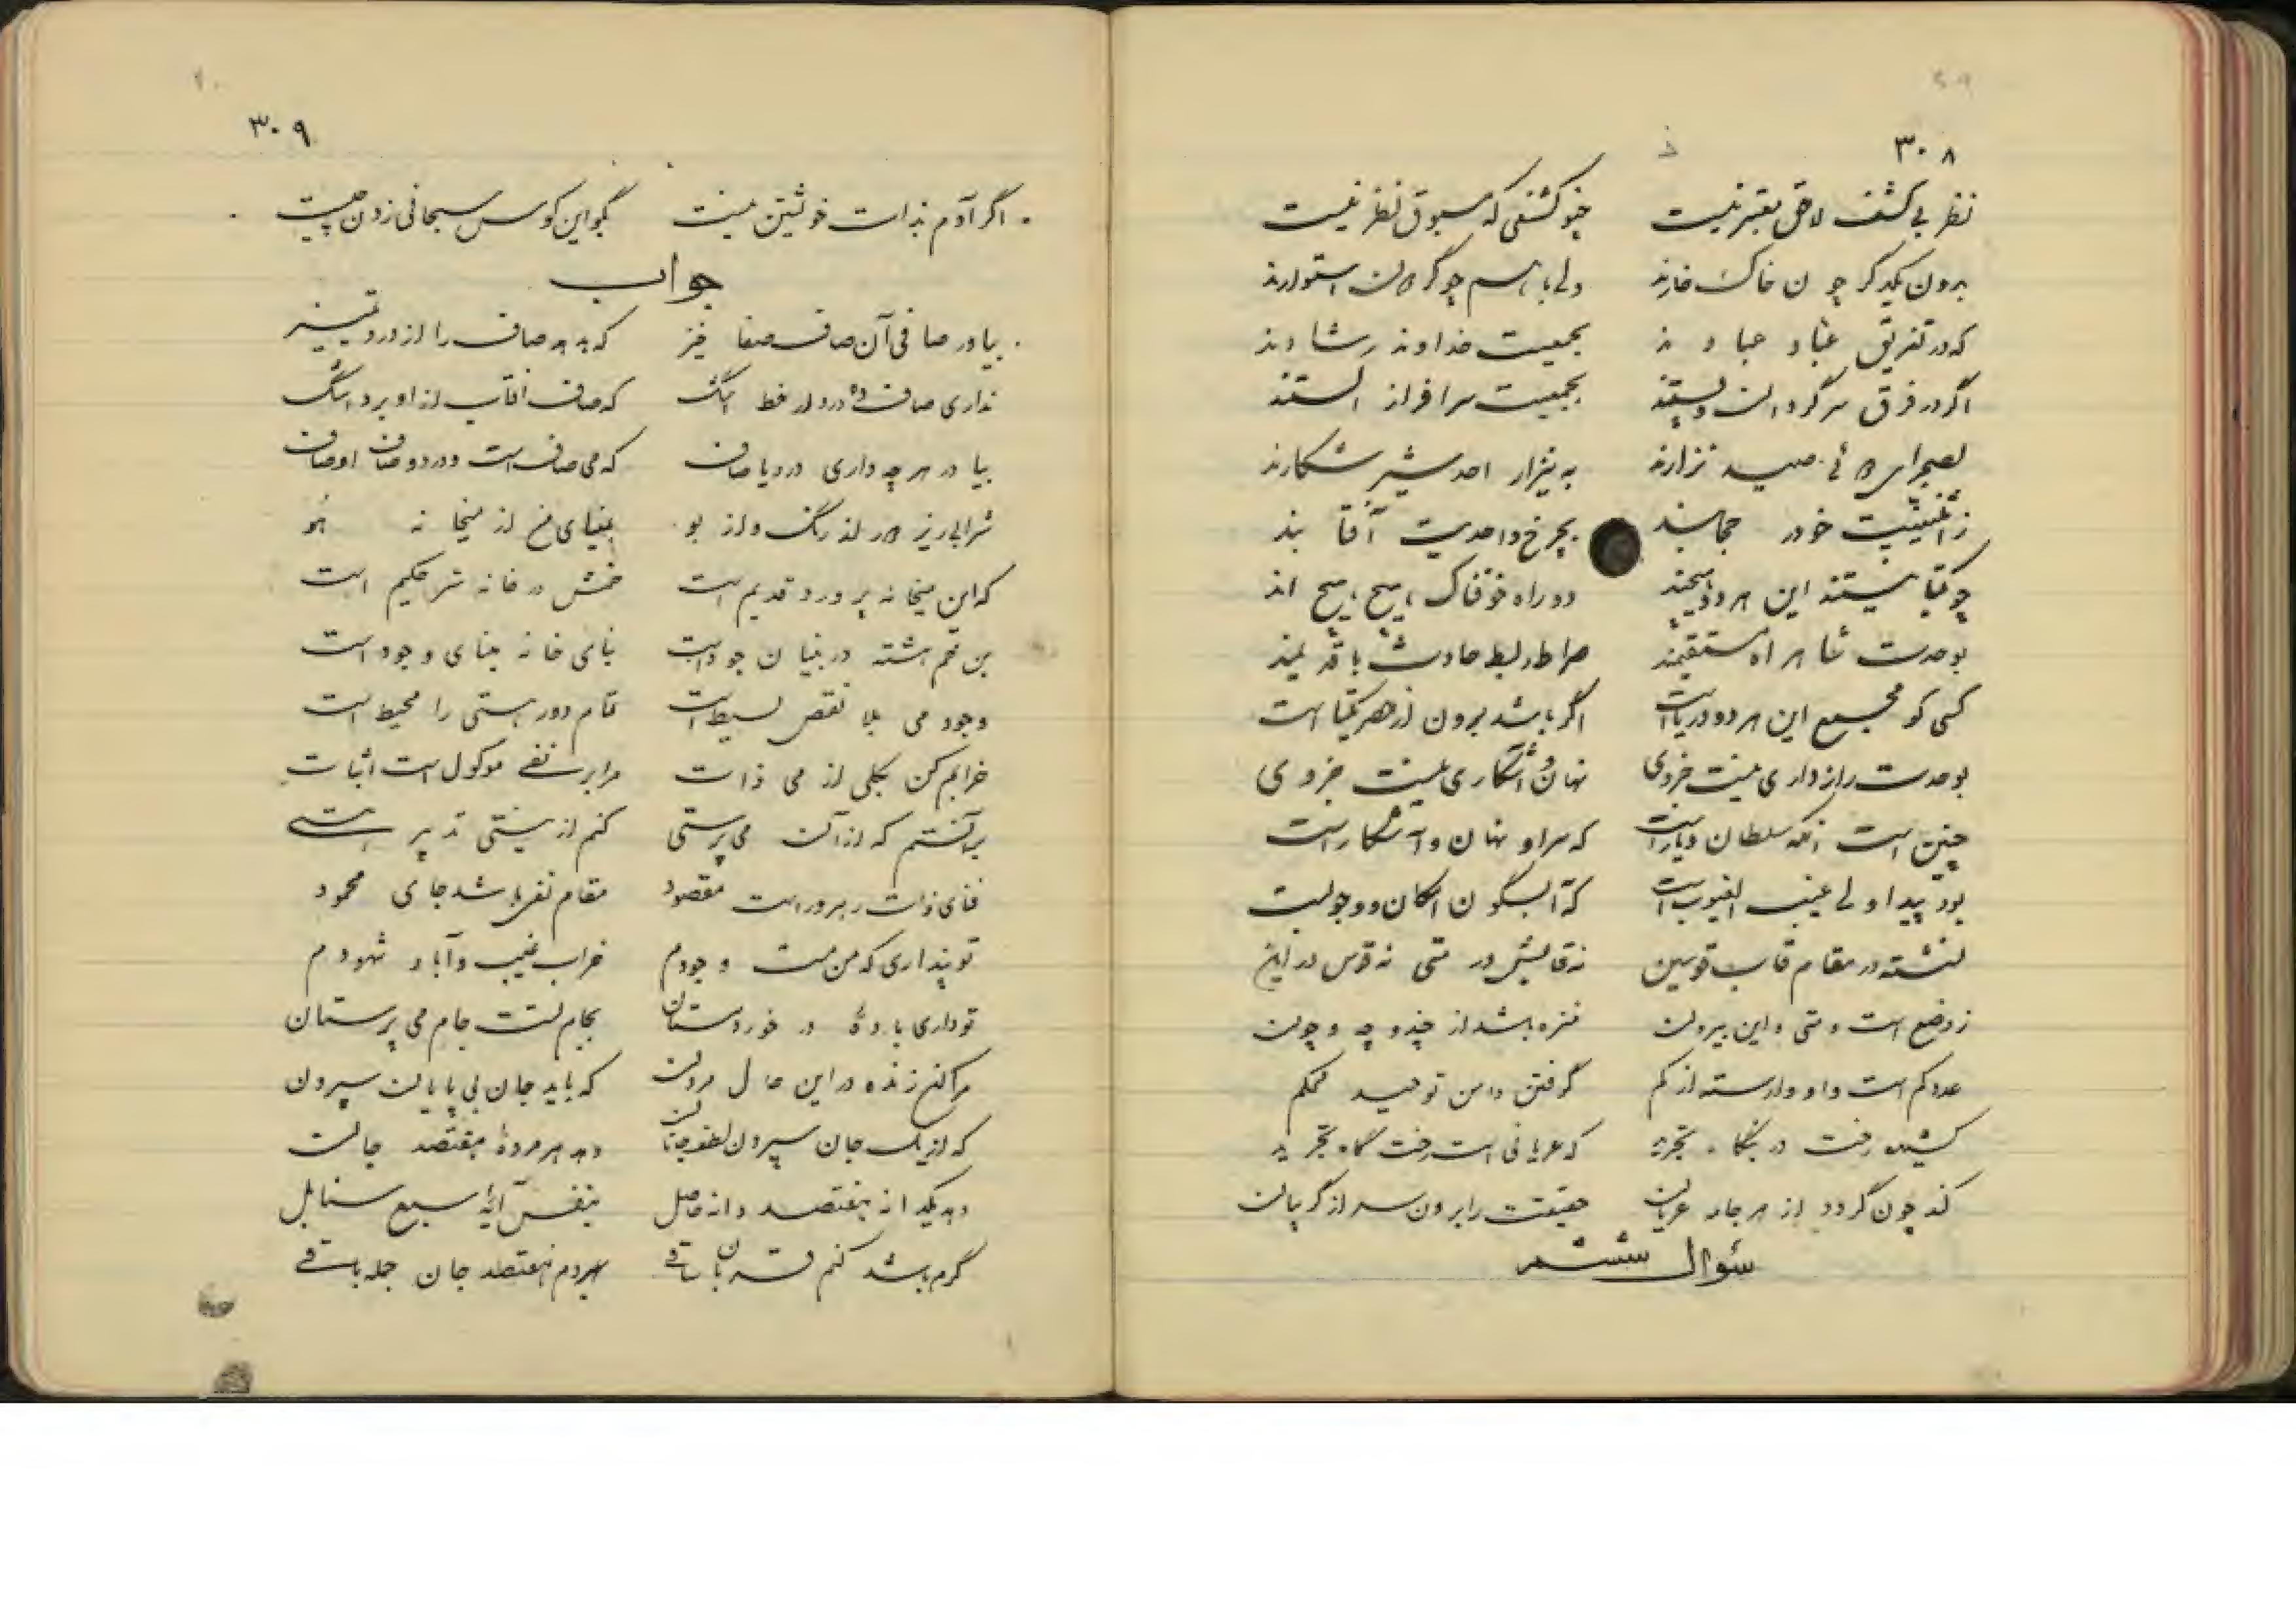 ۳۰۸
نظر بی کشف لاحق معتبر نیست چو کشفی که مسبوق نظر نیست
برون یکدگر چون خاک خارند ولی باهم چو گر استوارند
که در تفریق عباد عبادند بجمعیت خداوند رشادند
اگر در فرق سرگردان و پستند بجمعیت سرافراز الستند
بصحرای صید نزارند به نیزار احد شیر شکارند
ز اثنینیت خود در حجابند بچرخ واحدیت آفتابند
چو یکتا نیستند این هر دو هیچند دو راه خوفناک پیچ پیچ اند
بوحدت شاهراه مستقیمند صراط ربط حادث با قدیمند
کسی کو مجمع این هر دو دریاست اگر باشد برون از حصر یکتاست
بوحدت رازداری نیست جز وی نهان و آشکاری نیست جز وی
چنین است آنکه سلطان دیار است که سر او نهان و آشکار است
بود پیدا ولی غیب الغیوب است که آبستگون امکان و وجوب است
نشسته در مقام قاب قوسین نه قابش در متی نه قوس در این
ز وضع است و متی و این بیرون منزه باشد از چند و چه و چون
عدد کم است و او وارسته از کم گرفتن دامن توحید محکم
کشیده رخت در بنگاه تجرید که عریانی است رخت گاه تجرید
کند چون گردد از هر جامه عریان حقیقت را برون سر از گریبان
سئوال ششم
۳۰۹
اگر آدم بذات خویشتن نیست بگو این کوس سبحانی زدن چیست
جواب
بیاور صافی آن صاف صفا خیز که بدهد صاف را از درد تمییز
نداری صاف ده درد که صاف آفتاب از او برد رشک
بیا در هر چه داری درد یا صاف که می صاف است و درد و صاف اوصاف
شرابی ریز در از رنگ و از بو بمینای من از میخانه هو
که این میخانه پرورد قدیم است خمش در خانه سر حکیم است
بن خم هشته در بنیان جود است بنای خانه مبنای وجود است
وجود می بلا نقص بسیط است تمام دور هستی را محیط است
خرابم کن بکلی از می ذات مرا بر نفی موکول است اثبات
برآنستم که از آن می پرستی کنم از نیستی تدبیر هستی
فنای ذات رهرو راست مقصود مقام نفی شد جای محمود
تو پنداری که من مست وجودم خراب غیب و آباد شهودم
تو داری باده در خور دستان بجام تست جام می پرستان
مرا کن زنده در این حال مردن که باید جان بی پایان سپردن
که از یک جان سپردن لطف جانان دهد هر مرده هفتصد جان
دهد یکدانه هفتصد دانه حاصل بنفس آیه سبع سنابل
گرم باشد کنم قربان ساقی بهر دم هفتصد جان جمله باقی